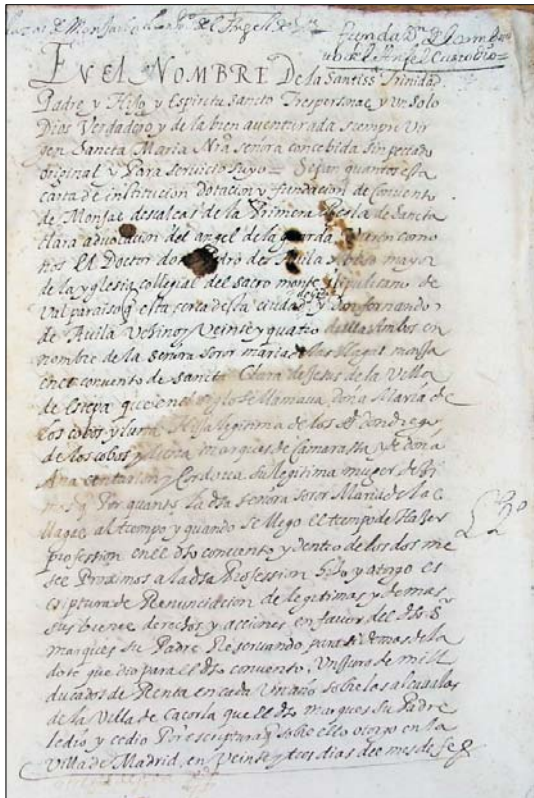 fundaon del combento
del Angel Custodio=
EN EL NOMBRE De la Santissa Trinidad
Padre y Hijo y Espiritu Sancto Trespersonas y un Solo
Dios Verdadero y de la bien aventurada siempre Vir
gen Sancta Maria Nra Señora concebida sin peccado
original y Para servicio suyo= Sepan quantos esta
carta de institucion dotacion y fundacion de Convento
de Monjas descalças de la Primera Regla de Sancta
Clara advocacion del angel de la guarda Vieren como
nos El Doctor don Pedro de Avila Abbad mayor
de la yglesia collegial del sacro monte ylipulitano de
Valparaiso q esta cerca desta ciudad y Don fernando
de Avila Vecino y Veinte y quatro della ambos en
nombre de la Señora soror maria de las llagas monja
en el convento de sancta Clara de Jesus de la Villa
de Estepa que en el siglo se llamava doña Maria de
los cobos y luna Hija legitima de los SS don diego
de los cobos y luna marques de Camarassa y de doña
Ana centurion y Cordova su legitima muger deçi
mos q Por quanto la dha señora soror Maria de las
llagas al tiempo y quando se llego el tiempo de Hazer
profession en el dho convento y dentro de los dos me
ses Proximos a la dha Profession hizo y otorgo es
criptura de Renunciacion de legitimas y demas
sus bienes derechos y acciones en favor del dho Sr
marques su Padre Reservando para si demas de la
dote que dio para el dho convento Un juro de mill
ducados de Renta en cada Un año sobre las alcavalas
de la Villa de Caçorla que el dho marques su Padre
le dio y cedio Por escriptura q sobre ello otorgo en la
Villa de Madrid en Veinte y tres dias del mes de